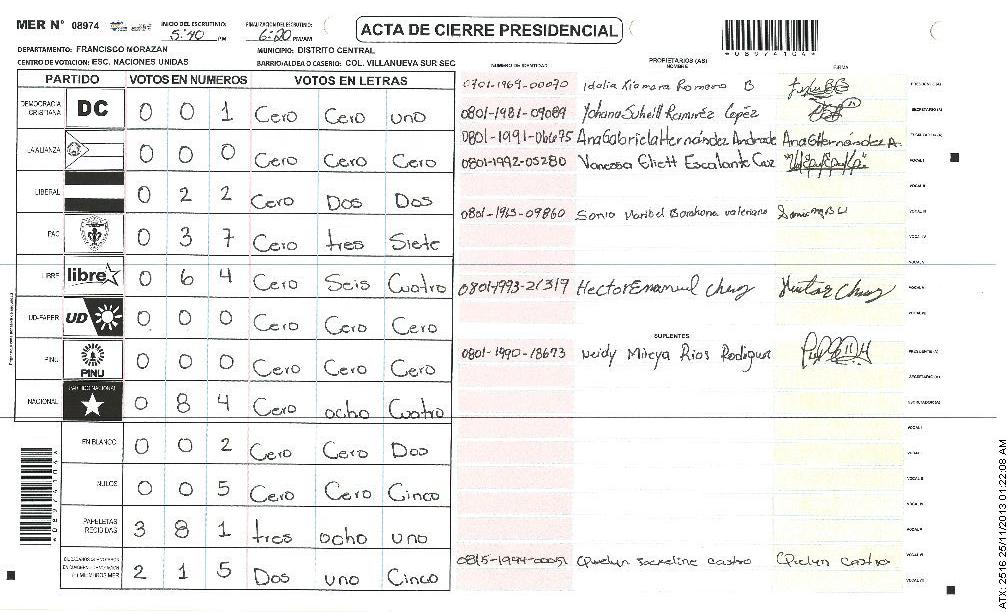 MER N° 08974 INICIO DEL ESCRUTINIO: 5:40 PM FINALIZACION DEL ESCRUTINIO: 6:20 PM/AM ACTA DE CIERRE PRESIDENCIAL
DEPARTAMENTO: FRANCISCO MORAZAN MUNICIPIO: DISTRITO CENTRAL
CENTRO DE VOTACION: ESC. NACIONES UNIDAS BARRIO/ALDEA O CASERIO: COL. VILLANUEVA SUR SEC
NUMERO DE IDENTIDAD PROPIETARIOS (AS) NOMBRE FIRMA
PARTIDO VOTOS EN NUMEROS VOTOS EN LETRAS
DEMOCRACIA CRISTIANA DC 0 0 1 Cero Cero uno
LA ALIANZA 0 0 0 Cero Cero Cero
LIBERAL 0 2 2 Cero Dos Dos
PAC 0 3 7 Cero tres Siete
LIBRE libre 0 6 4 Cero Seis Cuatro
UD-FAPER UD 0 0 0 Cero Cero Cero
PINU PINU 0 0 0 Cero Cero Cero
NACIONAL PARTIDO NACIONAL 0 8 4 Cero ocho Cuatro
EN BLANCO 0 0 2 Cero Cero Dos
NULOS 0 0 5 Cero Cero Cinco
PAPELETAS RECIBIDAS 3 8 1 tres ocho uno
2 1 5 Dos uno Cinco
0701-1969-00070 Idalia Xiomara Romero B PRESIDENTE (A)
0801-1981-09089 Yohana Suhell Ramirez Lopez SECRETARIO (A)
0801-1991-06675 Ana Gabriela Hernández Andrade Ana G Hernández A. ESCRUTADOR (A)
0801-1992-05280 Vanessa Eliett Escalante Caz VOCAL I
VOCAL II
0801-1963-09860 Sonia Maribel Barahona valeriano VOCAL III
VOCAL IV
VOCAL V
0801-1993-21317 Hector Emanuel Chuy Hector Chuy
SUPLENTES
0801-1990-18673 Neidy Mireya Rios Rodriguez PRESIDENTE (A)
SECRETARIO (A)
ESCRUTADOR (A)
VOCAL I
VOCAL II
VOCAL III
0815-1994-00051 Castro Castro
*08974104*
ATX: 2516 25/11/2013 01:22:08 AM